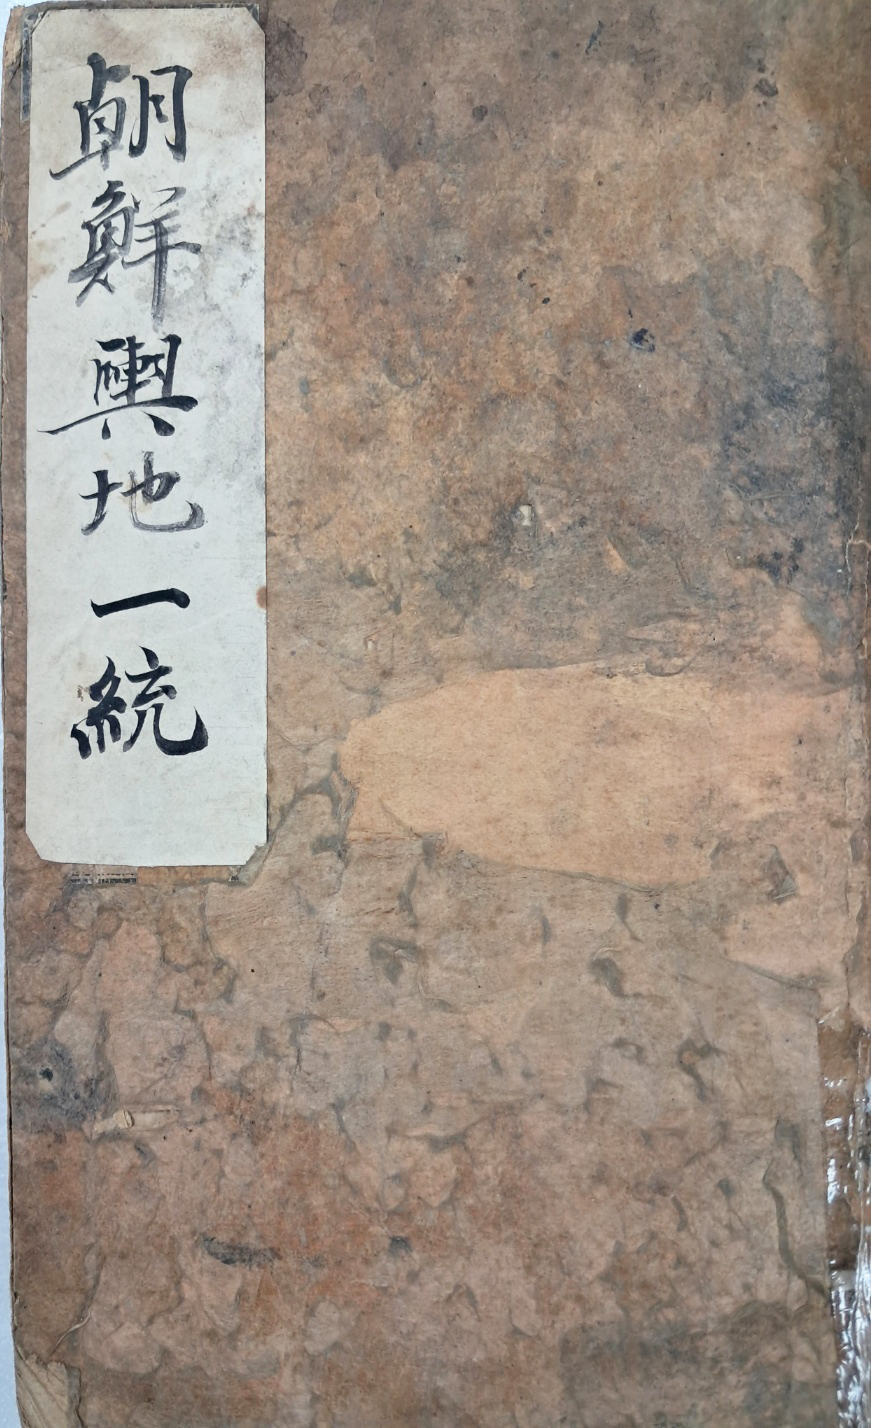 朝鮮輿地一統